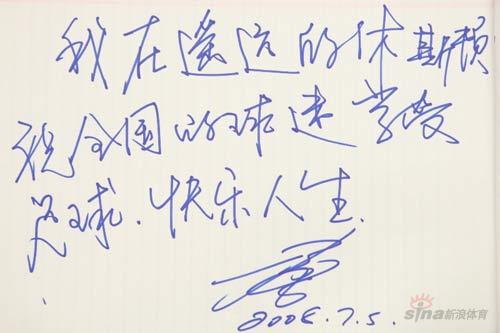 我在遥远的休斯顿
祝全国的球迷享受
足球.快乐人生.
2006.7.5.
sina新浪体育